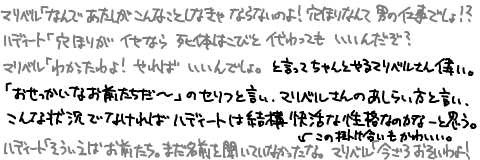 マリベル「なんであたしがこんなことしなきゃならないのよ！穴ほりなんて男の仕事でしょ！？
ハディート「穴ほりがイヤなら死体はこびと代わってもいいんだぞ？
マリベル「わかったわよ！やればいいんでしょ。と言ってちゃんとやるマリベルさん偉い。
「おせっかいなお前たちだ〜」のセリフと言い、マリベルさんのあしらい方と言い、
こんな状況でなければハディートは結構快活な性格なのかなーと思う。
この掛け合いもかわいい。
ハディート「そういえばお前たち。まだ名前を聞いていなかったな。マリベル「今ごろおそいわよ！